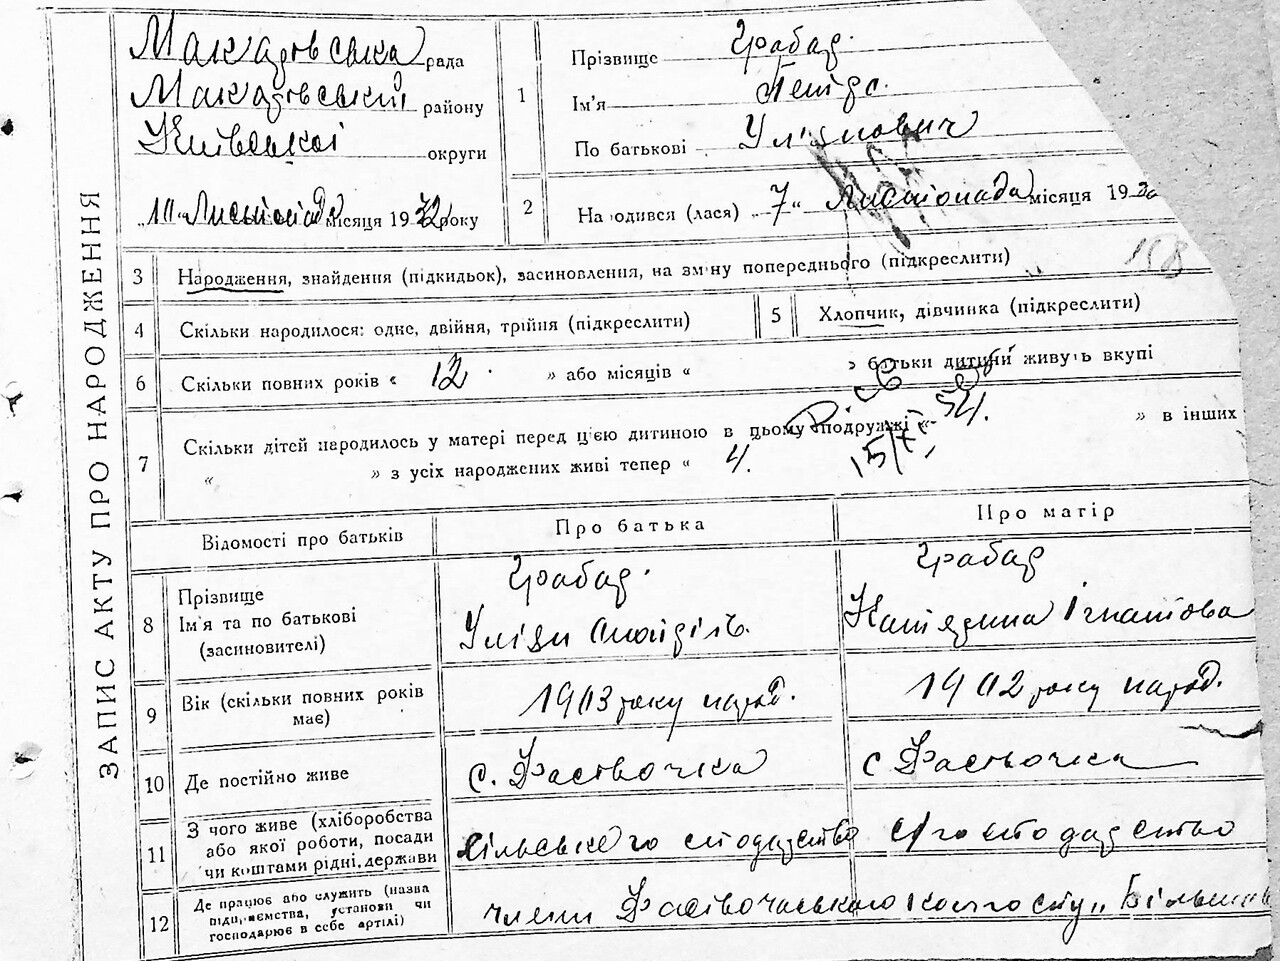 ЗАПИС АКТУ ПРО НАРОДЖЕННЯ
Макарівська рада
Макарівський району
Київської округи
„10" Листопада місяця 1932 року
1
Прізвище Грабар.
Ім'я Петро.
По батькові Улянович
2
Народився (лася) „7" Листопада місяця 19
3 Народження, знайдення (підкидьок), засиновлення, на зміну попереднього (підкреслити)
158
4 Скільки народилося: одне, двійня, трійня (підкреслити)
5 Хлопчик, дівчинка (підкреслити)
6 Скільки повних років « 12 » або місяців « » батьки дитини живуть вкупі
7 Скільки дітей народилось у матері перед цією дитиною в цьому подружжі « » в інших
« » з усіх народжених живі тепер « 4.
15/X 54.
Відомості про батьків
Про батька
Про матір
8 Прізвище
Ім'я та по батькові
(засиновителі)
Грабар.
Улян
Грабар
Катерина Ігнатова
9 Вік (скільки повних років
має)
1903 року народ.
1902 року народ.
10 Де постійно живе
с. Фасівочка
с Фасівочка
11 З чого живе (хліборобства
або якої роботи, посади
чи коштами рідні, держави
сільського сподарство
с/господарство
12 Де працює або служить (назва
підприємства, установи чи
господарює в себе артілі)
член Фасівочського колгоспу „Більшовик